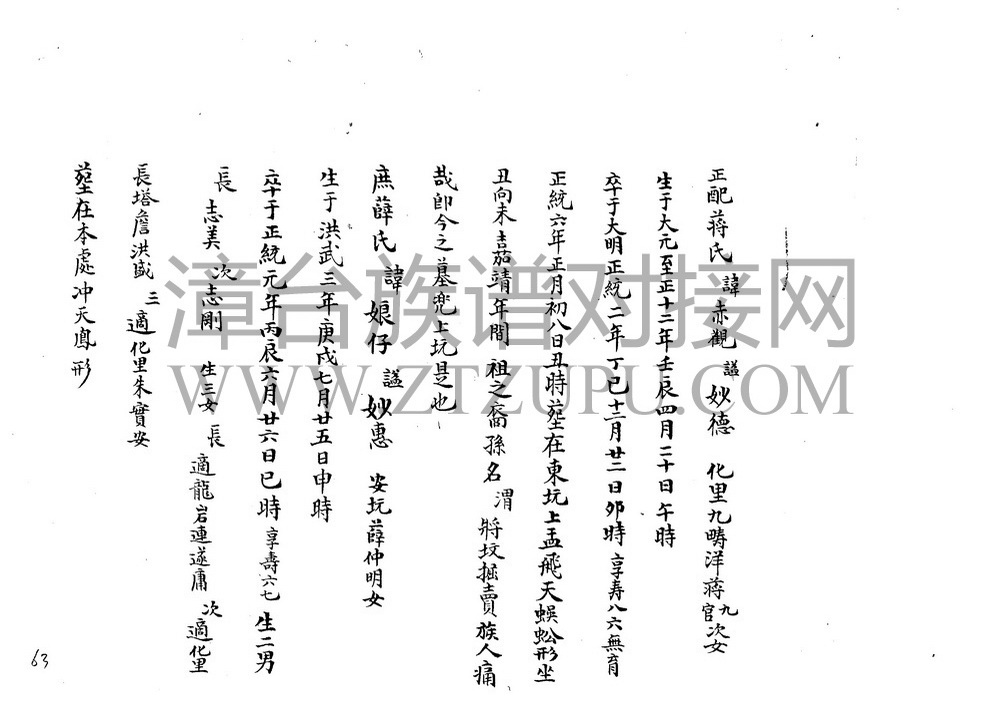 正配蔣氏 諱 赤觀 謚 妙德 化里九疇洋蔣九官次女
生于大元至正十二年壬辰四月二十日午時
卒于大明正統二年丁巳十二月廿二日卯時 享寿八六無育
正統六年正月初八日丑時塟在東坑上盂飛天蜈蚣形坐
丑向未嘉靖年間祖之裔孫名渭將坟掘賣族人痛
哉即今之墓兜上坑是也
庶薛氏 諱 娘仔 謚 妙惠 安坑薛仲明女
生于洪武三年庚戌七月廿五日申時
卒于正統元年丙辰六月廿六日巳時 享壽六七 生二男
長志美 次志剛 生三女 長適龍岩連遂庸 次適化里
長塔詹洪盛 三適化里朱實安
塟在本處冲天鳳形
63
漳台族谱对接网
WWW.ZTZUPU.COM